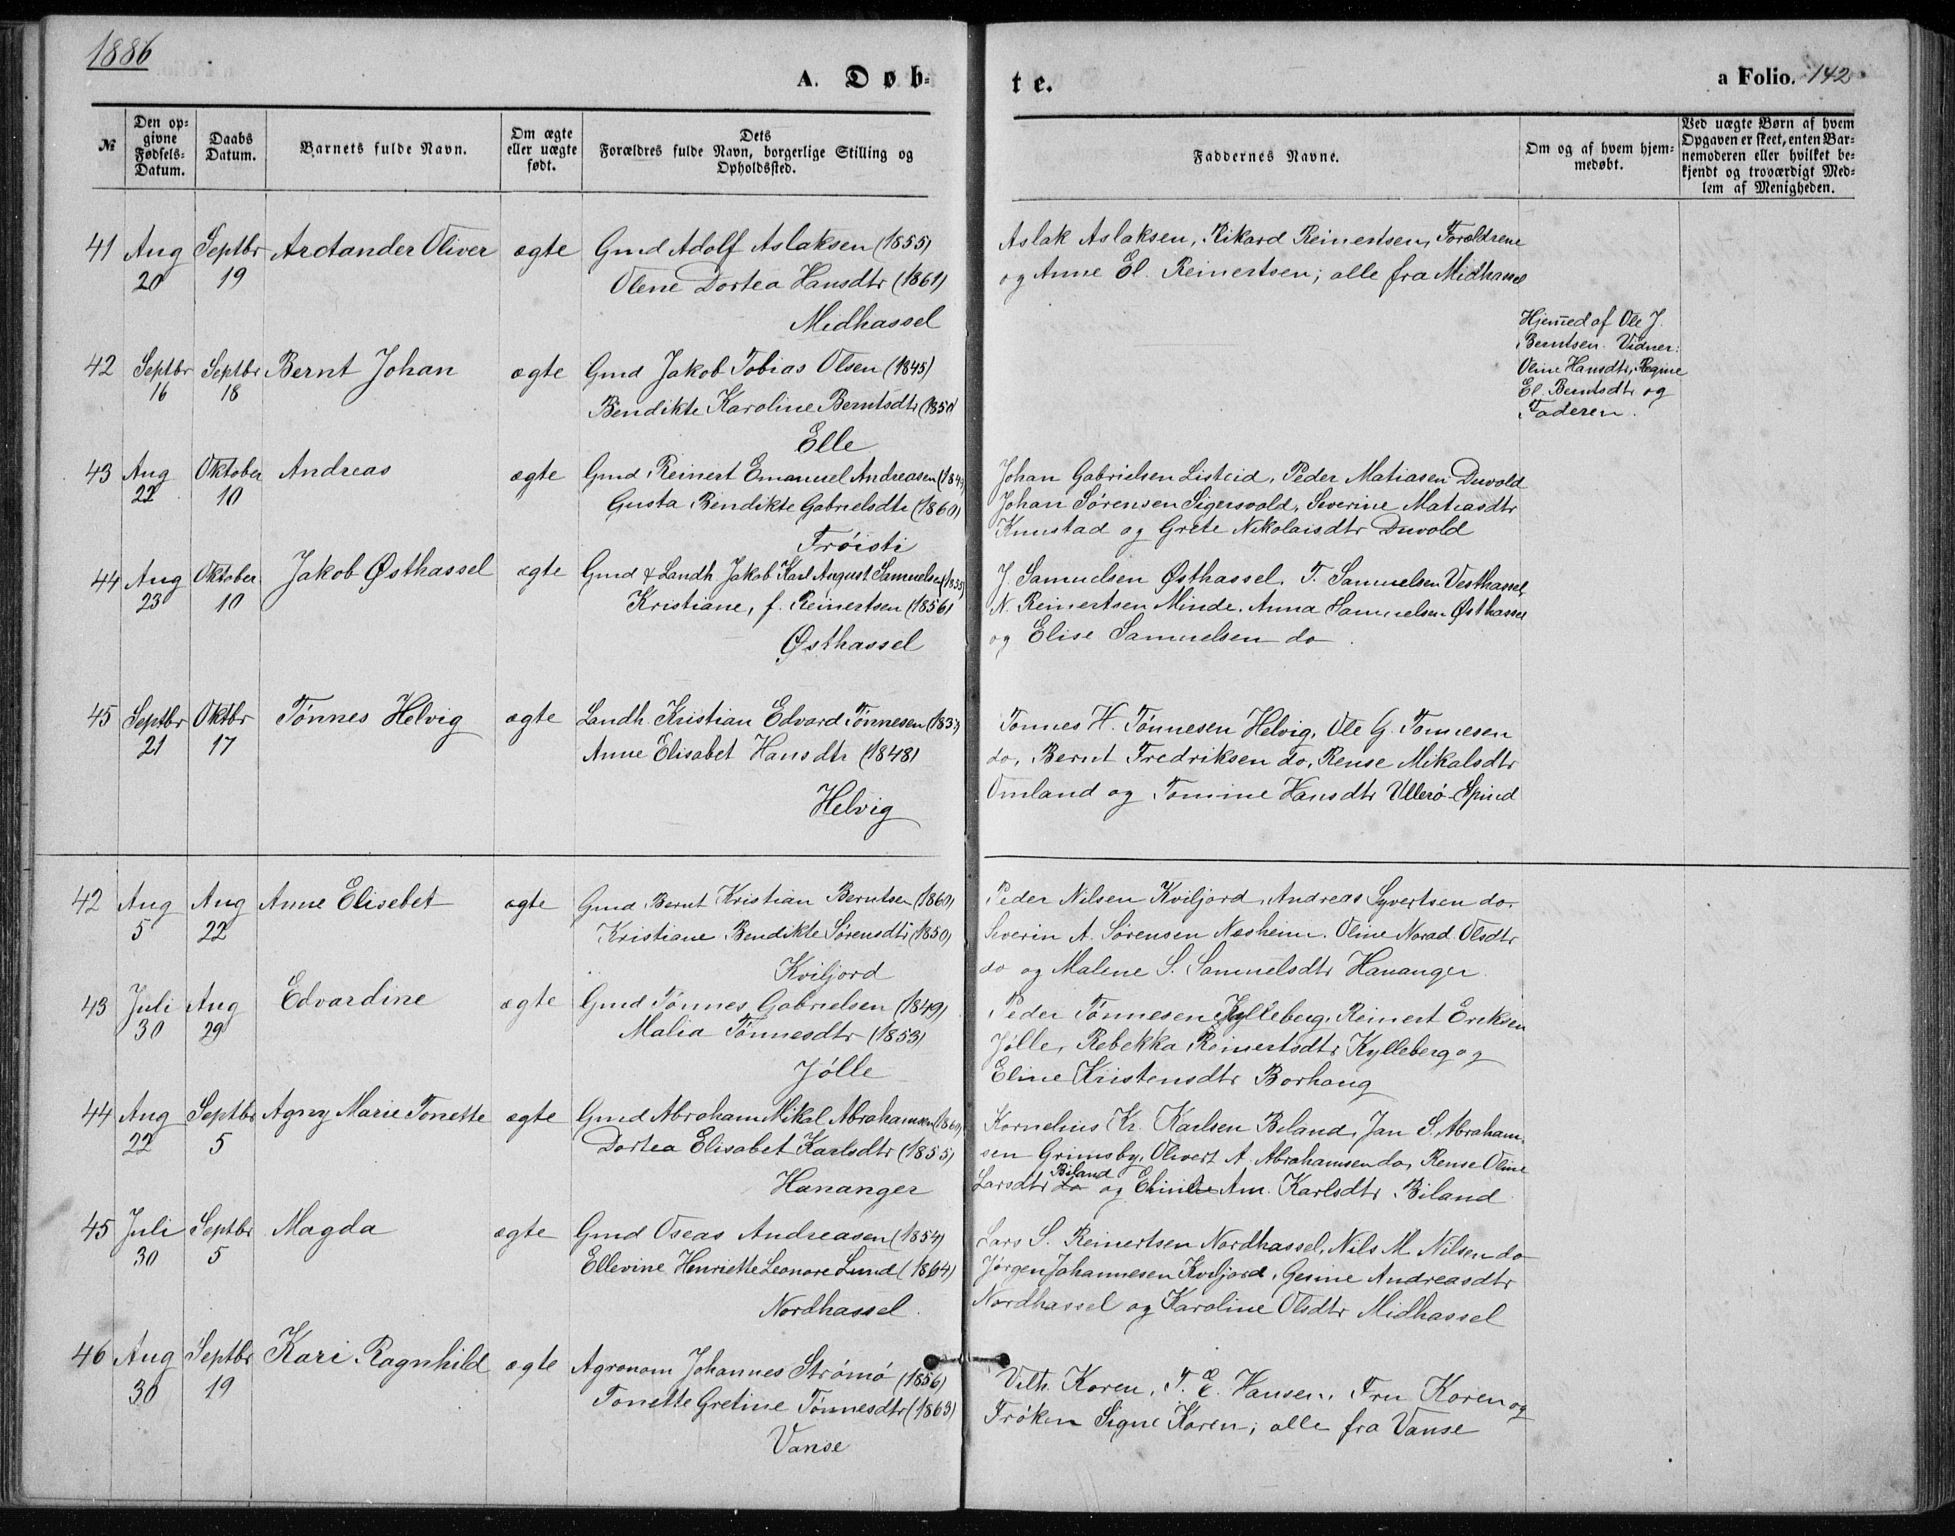 1886
A. Døb-
te.
a Folio. 142
№
Den op-
givne
Fødsels-
Datum.
Daabs
Datum.
Barnets fulde Navn.
Om ægte
eller uægte
født.
Dets
Forældres fulde Navn, borgerlige Stilling og
Opholdssted.
Faddernes Navne.
Om og af hvem hjem-
medøbt.
Ved uægte Børn af hvem
Opgaven er skeet, enten Bar-
nemoderen eller hvilket be-
kjendt og troværdigt Med-
lem af Menigheden.
41 Aug Septbr Arctander Oliver ægte Gmd Adolf Aslaksen (1855)
20 19 Olene Dortea Hansdtr (1861)
Midhassel
Aslak Aslaksen, Rikard Reinertsen, Forældrene
og Anne El. Reinertsen; alle fra Midhassel
42 Septbr Septbr Bernt Johan ægte Gmd Jakob Tobias Olsen (1845)
16 18 Bendikte Karoline Berntsdtr (1850)
Elle
Hjemed af Ole J.
Berntsen. Vidner:
Oline Hansdtr, Regine
El. Berntsdtr og
Faderen.
43 Aug Oktober Andreas ægte Gmd Reinert Emanuel Andreasen
22 10 Gusta Bendikte Gabrielsdtr (1860)
Frøisti
Johan Gabrielsen Listeid, Peder Matiasen Duvold
Johan Sørensen Sigersvold, Severine Matiasdtr
Knustad og Grete Nikolaisdtr Duvold
44 Aug Oktober Jakob Østhassel ægte Gmd & Landh Jakob Karl August Samuelsen (1835)
23 10 Kristiane, f. Reinertsen (1856)
Østhassel
J. Samuelsen Østhassel, T. Samuelsen Vesthassel,
N. Reinertsen Minde, Anna Samuelsen Østhassel
og Elise Samuelsen do.
45 Septbr Oktbr Tønnes Helvig ægte Landh. Kristian Edvard Tønnesen
21 17 Anne Elisabet Hansdtr (1848)
Helvig
Tønnes H. Tønnesen Helvig, Ole G. Tønnesen
do, Bernt Fredriksen do, Rense Mikalsdtr
Omland og Tomine Hansdtr Ullerø Spind
42 Aug Aug Anne Elisebet ægte Gmd Bernt Kristian Berntsen (1860)
5 22 Kristiane Bendikte Sørensdtr (1850)
Kviljord
Peder Nilsen Kviljord, Andreas Syvertsen do,
Severin A. Sørensen Nesheim, Oline Norad. Olsdtr
do og Malene S. Samuelsdtr Hananger.
43 Juli Aug Edvardine ægte Gmd Tønnes Gabrielsen (1849)
30 29 Malia Tønnesdtr (1853)
Jølle
Peder Tønnesen Kylleberg, Reinert Eriksen
Jølle, Rebekka Reinertsdtr Kylleberg og
Eline Kristensdtr Borhaug
44 Aug Septbr Agny Marie Tonette ægte Gmd Abraham Mikal Abrahamsen
22 5 Dortea Elisabet Karlsdtr (1855)
Hananger
Kornelius Kr. Karlsen Biland, Jan S. Abraham-
sen Grimsby, Olivert A. Abrahamsen do, Rense Oline
Larsdtr do Biland og Eline Am. Karlsdtr Biland
45 Juli Septbr Magda ægte Gmd Oseas Andreasen (1854)
30 5 Ellevine Henriette Leonore Lund (1864)
Nordhassel.
Lars S. Reinertsen Nordhassel, Nils M. Nilsen do
Jørgen Johannesen Kviljord, Gesine Andreasdtr
Nordhassel og Karoline Olsdtr Midhassel
46 Aug Septbr Kari Ragnhild ægte Agronom Johannes Strømø (1856)
30 19 Tonette Gretine Tønnesdtr (1863)
Vanse
Vilh. Koren, T. E. Hansen, Fru Koren og
Frøken Signe Koren; alle fra Vanse